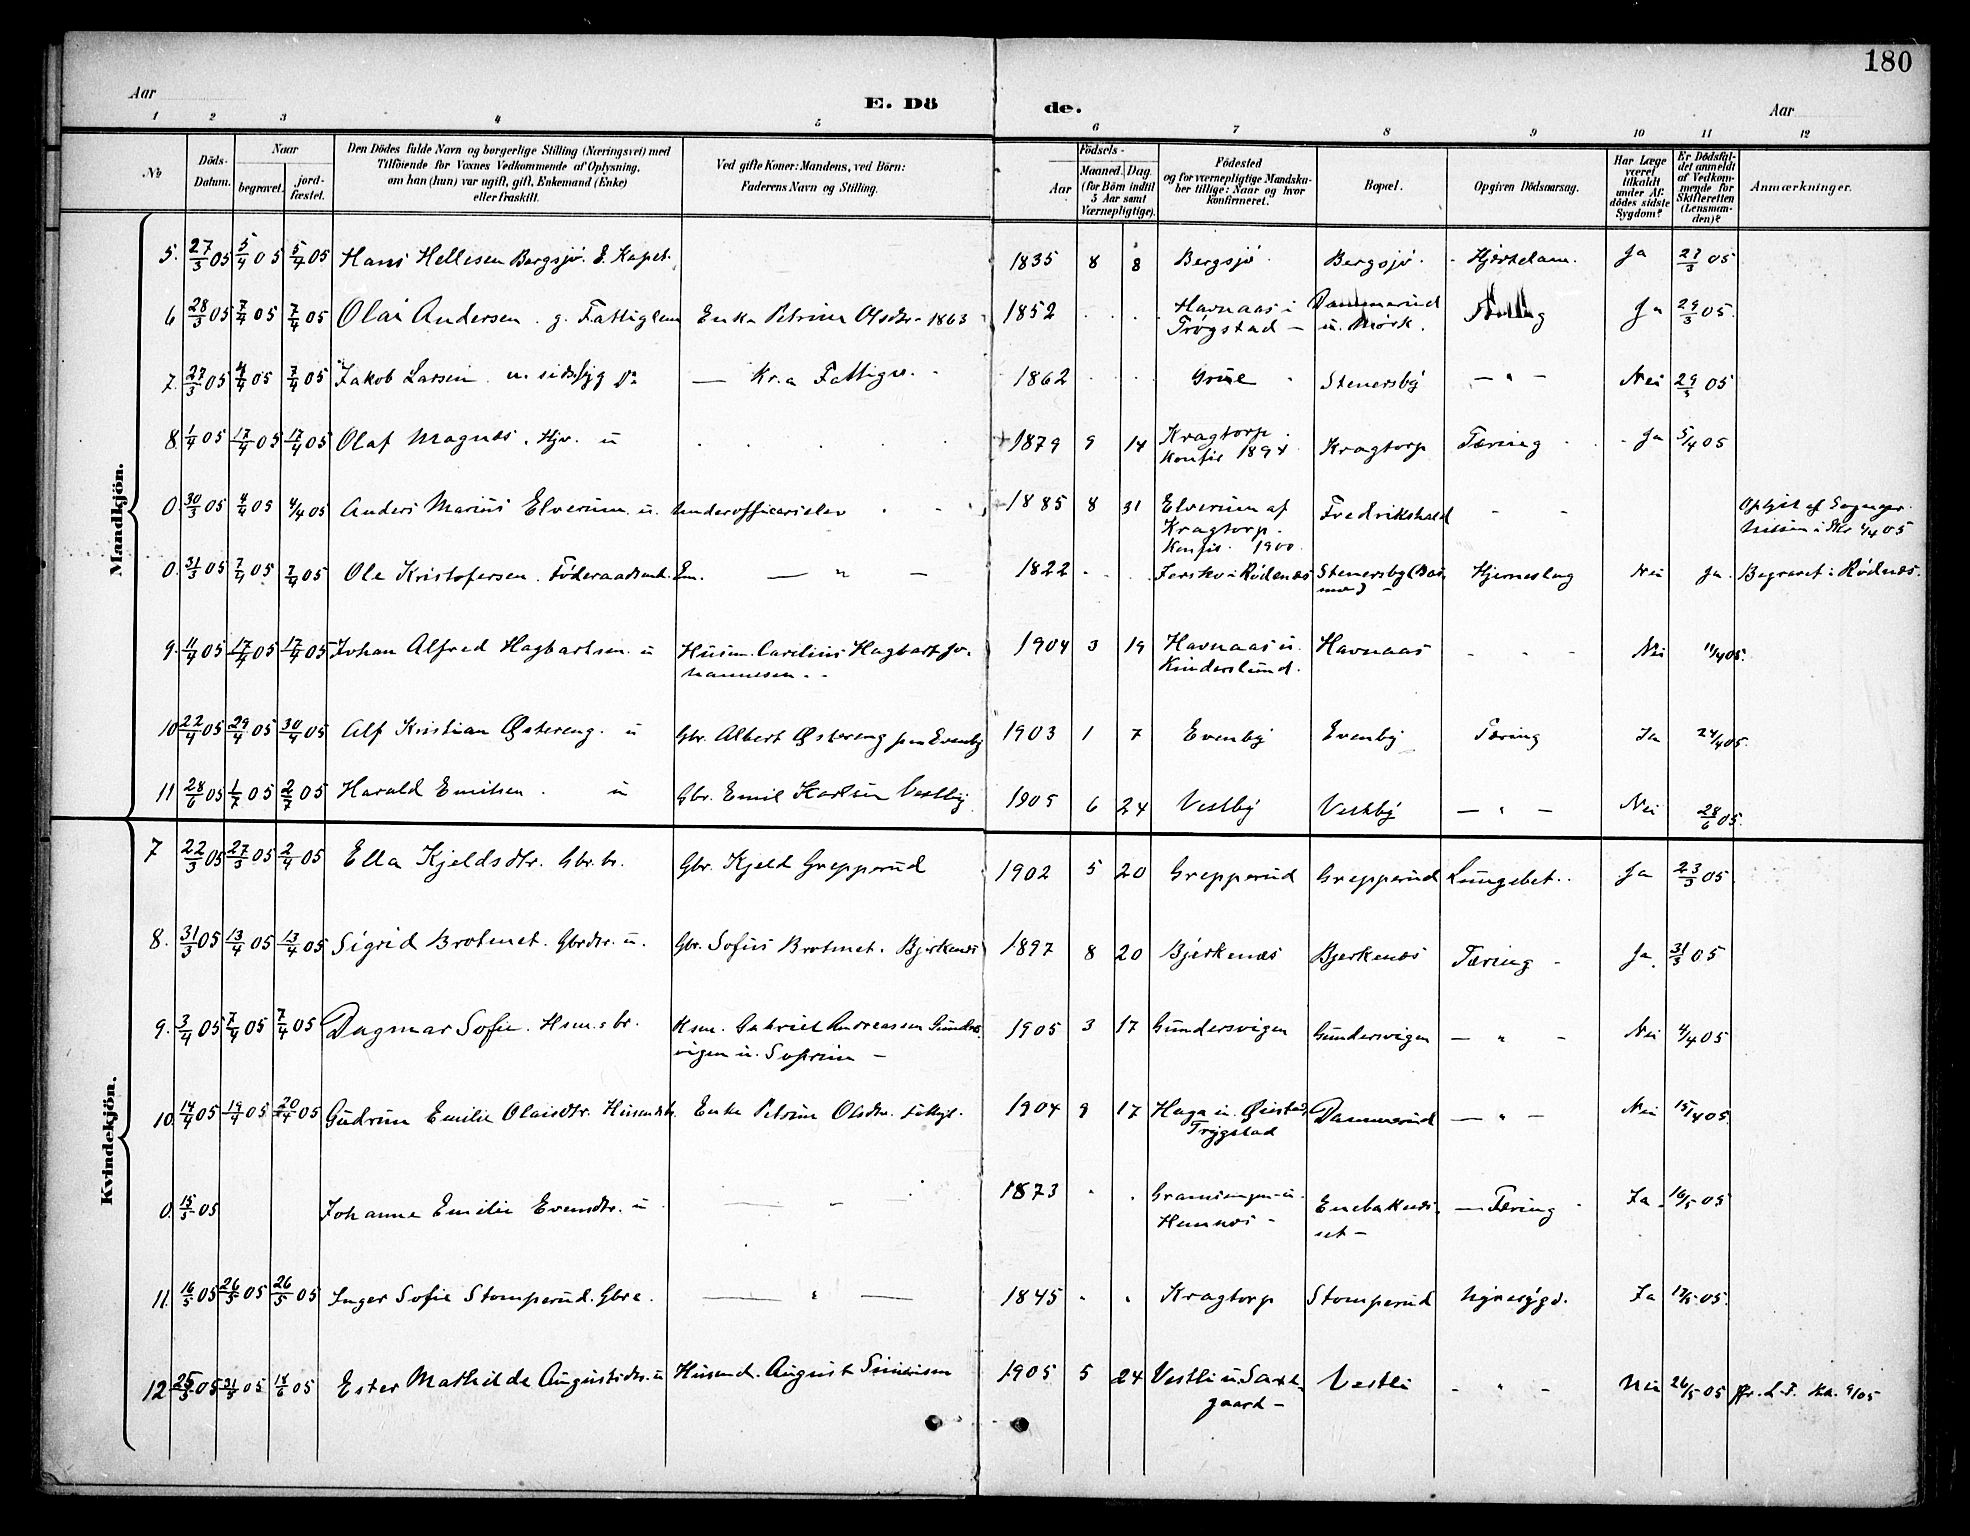 180
Aar
E. Dö
de.
Aar
1 2 3 4 5 6 7 8 9 10 11 12
No
Döds-
Datum.
Naar
begravet.
jord-
fæstet.
Den Dödes fulde Navn og borgerlige Stilling (Næringsvei) med
Tilföiende for Voxnes Vedkommende af Oplysning,
om han (hun) var ugift, gift, Enkemand (Enke)
eller fraskilt.
Ved gifte Koner: Mandens, ved Börn:
Faderens Navn og Stilling.
Födsels-
Aar
Maaned. Dag.
(for Börn indtil
5 Aar samt
Værnepligtige).
Födested
og for værnepligtige Mandska-
ber tillige: Naar og hvor
konfirmeret.
Bopæl.
Opgiven Dödsaarsag.
Har Læge
været
tilkaldt
under Af-
dödes sidste
Sygdom?
Er Dödsfal-
det anmeldt
af Vedkom-
mende for
Skifteretten
(Lensman-
den)?
Anmærkninger.
Mandkjön.
5. 27/3 05 5/4 05 5/4 05 Hans Hellesen Bergsjø. 1835 8 8 Bergsjø Bergsjø Ja 27/3 05
6 28/3 05 7/4 05 7/4 05 Olai Andersen. g. Fattiglem Enke Petrine Olsdtr. 1863 1852 Havnaas i Dammerud Ja 29/3 05.
Trøgstad – u. Mørk.
7. 27/3 05 7/4 05 Jakob Larsen. Kr.a Fattigv. 1862 Grue Stenersby – " – Nei 29/3 05
8. 1/4 05 17/4 05 17/4 05 Olaf Magnus. u 1879 9 14 Kragtorp. Kragtorp Tæring Ja 5/4 05
Konfir 1894
0. 30/3 05 4/4 05 4/4 05 Anders Marius Elverum. u. Underofficerselev 1885 8 31 Elverum af Fredrikshald
Kragtorp.
Konfir. 1900.
0. 31/3 05 7/4 05 7/4 05 Ole Kristofersen. Föderaadsmd. Em. — " — 1822 i Rödenæs Stenersby Hjerneslag Nei Ja. Begravet i Rödnæs.
9. 11/4 05 17/4 05 17/4 05 Johan Alfred Hagbartsen. u Husm. Carelius Hagbart Jo- 1904 3 19 Havnaas u. Havnaas Nei 11/4 05.
hannesen Kinderslund.
10 22/4 05 29/4 05 30/4 05 Alf Kristian Østereng. u Gbr. Albert Østereng Evenby 1903 1 7 Evenby Evenby Tæring Ja 24/4 05.
11 28/6 05 1/7 05 2/7 05 Harald Emilsen. u Gbr. Emil Karlsen Vestby 1905 6 24 Vestby Vestby — " — Nei 28/6 05.
Kvindekjön.
7 22/3 05 27/3 05 2/4 05 Ella Kjeldsdtr. Gbr.br. Gbr. Kjeld Grepperud 1902 5 20 Grepperud Grepperud Lungebet. Ja 23/3 05
8. 31/3 05 13/4 05 13/4 05 Sigrid Brotmet. Gbrdtr. u. Gbr. Sofus Brotmet. Bjerkenæs 1897 8 20 Bjerkenæs Bjerkenæs Tæring Ja. 31/3 05
9. 3/4 05 7/4 05 7/4 05 Dagmar Sofie. Hsm.s br. Hsm. Gabriel Andreassen Gunders- 1905 3 17 Gundersvigen Gundersvigen — " — Nei 4/4 05
vigen u.
10. 14/4 05 19/4 05 20/4 05 Gudrun Emilie Olaisdtr. Enke Petrine Olsdtr. 1904 9 17 Haga u. Dammerud — " — Nei 15/4 05.
Trygstad
0. 15/5 05 Johanne Emilie Evensdtr. u — " — 1873 Tæring Ja 16/5 05
Hemnæs
11. 16/5 05 26/5 05 26/5 05 Inger Sofie Stomperud. — " — 1845 Kragtorp Stomperud Nyresygd. Ja 17/5 05.
12 25/5 05 31/5 05 05 Ester Mathilde Augustsdtr. u Husmd. August 1905 5 24 Vestli u. Vestli — " — Nei 26/5 05
gaard –